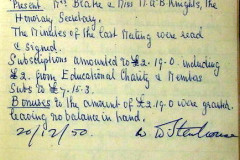 Present Mrs Blake & Miss M.A.B. Knights, the
Honorary Secretary.
The Minutes of the Last Meeting were read
& signed.
Subscriptions amounted to £2.19.0. including
£2. from Educational Charity & Members
Subs to £7.15.3.
Bonuses to the amount of £2.19.0 were granted
leaving no balance in hand.
20/12/50.